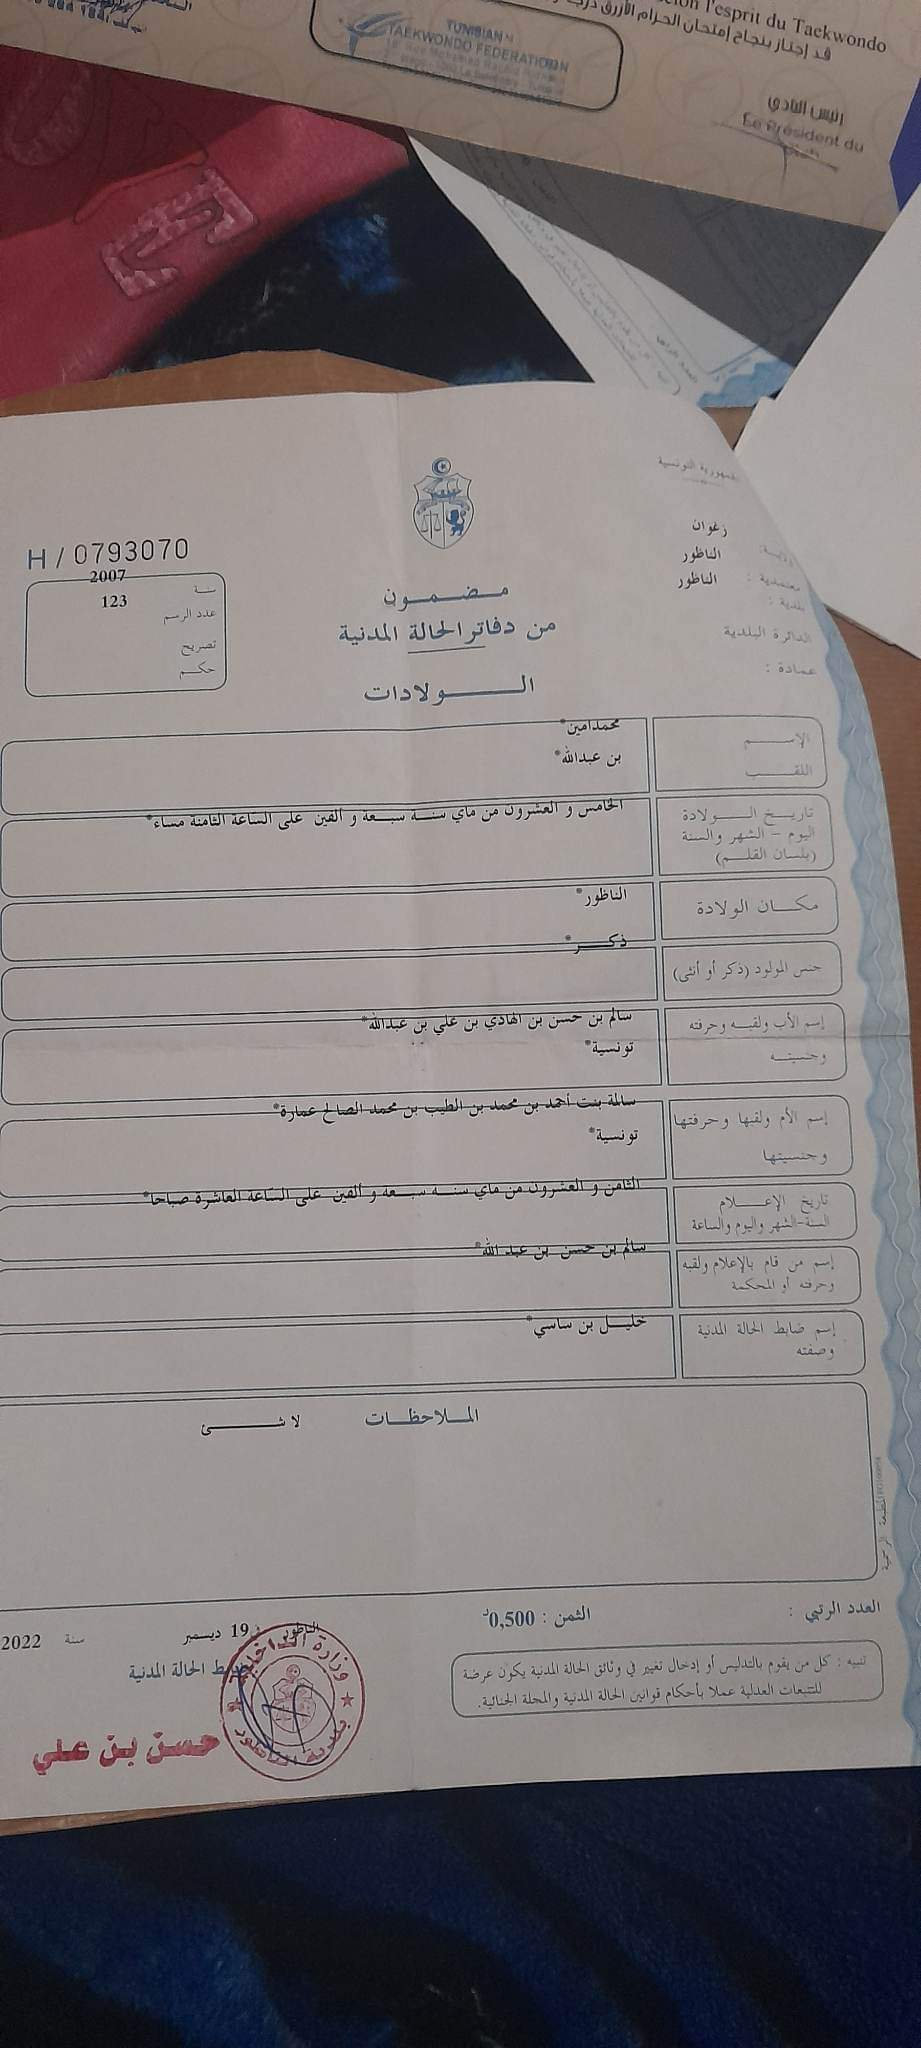 l'esprit du Taekwondo
قد إجتاز بنجاح إمتحان الحزام الأزرق
TUNISIAN
TAEKWONDO FEDERATION
رئيس النادي
Le Président du
الجمهورية التونسية
H / 0793070
سنة 2007
عدد الرسم 123
تصريح
حكم
زغوان
ولاية: الناظور
معتمدية : الناظور
بلدية :
الدائرة البلدية
عمادة :
مضمون
من دفاتر الحالة المدنية
الولادات
الإسم محمدامين*
اللقب بن عبدالله*
تاريخ الولادة الخامس و العشرون من ماي سنة سبعة و ألفين على الساعة الثامنة مساء*
اليوم - الشهر والسنة
(بلسان القلم)
مكان الولادة الناظور*
جنس المولود (ذكر أو أنثى) ذكر*
إسم الأب ولقبه وحرفته سالم بن حسن بن الهادي بن علي بن عبدالله*
وجنسيته تونسية*
إسم الأم ولقبها وحرفتها سالمة بنت أحمد بن محمد بن الطيب بن محمد الصالح عمارة*
وجنسيتها تونسية*
تاريخ الإعلام الثامن و العشرون من ماي سنة سبعة و ألفين على الساعة العاشرة صباحا*
السنة-الشهر واليوم والساعة
إسم من قام بالإعلام ولقبه سالم بن حسن بن عبد الله*
وحرفته أو المحكمة
إسم ضابط الحالة المدنية خليل بن ساسي*
وصفته
الملاحظات لا شئ
المطبعة الرسمية
العدد الرتبي : الثمن : 0,500د
الناظور في 19 ديسمبر سنة 2022
ضابط الحالة المدنية
تنبيه : كل من يقوم بالتدليس أو إدخال تغيير في وثائق الحالة المدنية يكون عرضة
للتتبعات العدلية عملا بأحكام قوانين الحالة المدنية والمجلة الجنائية.
وزارة الداخلية
بلدية الناظور
حسن بن علي